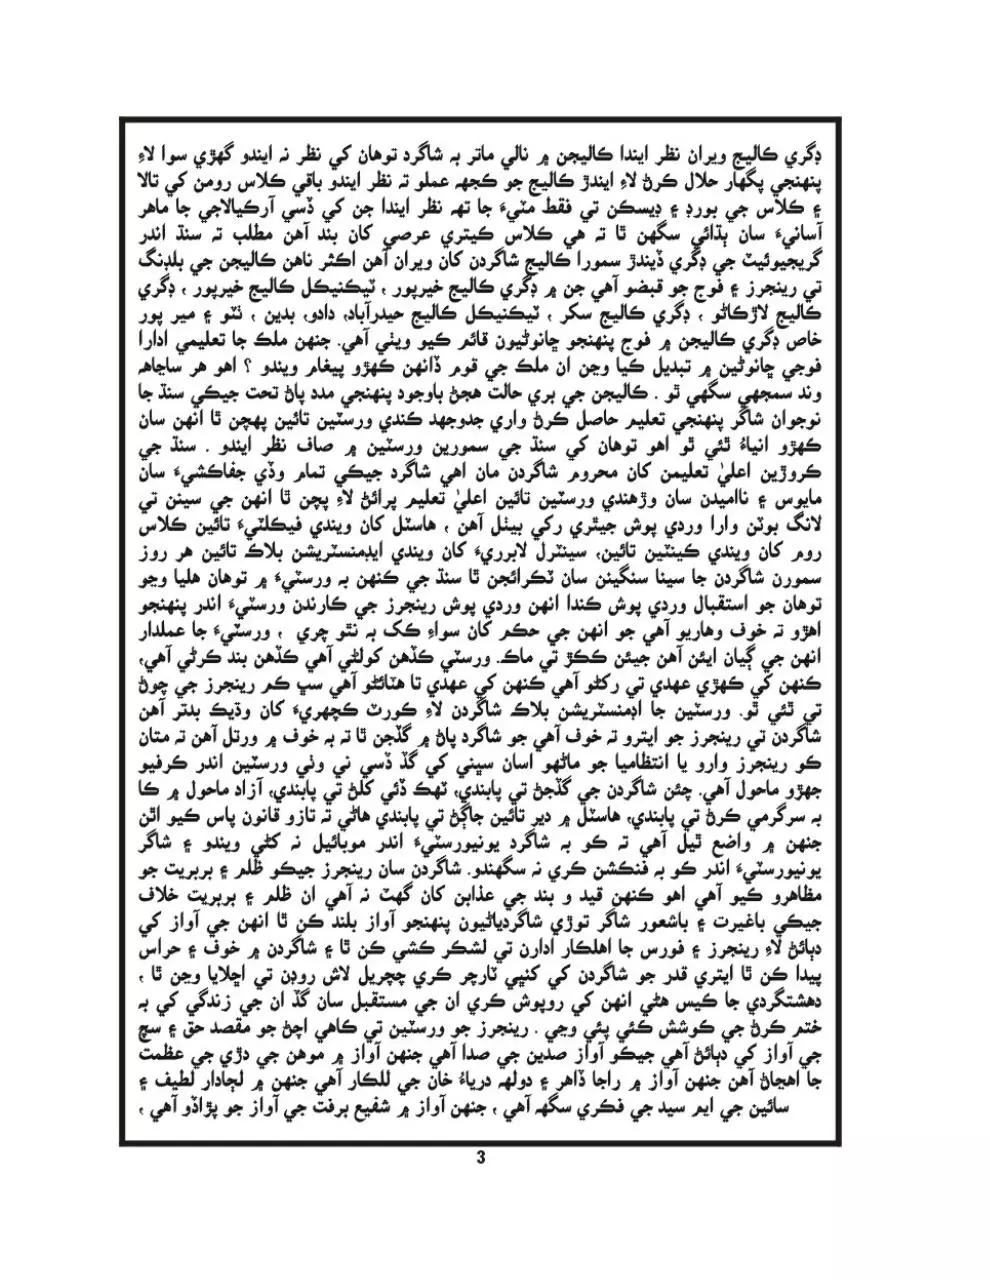 ڊگري ڪاليج ويران نظر ايندا ڪاليجن ۾ نالي ماتر بہ شاگرد توهان کي نظر نہ ايندو گهڙي سوا لاءِ
پنهنجي پگهار حلال ڪرڻ لاءِ ايندڙ ڪاليج جو ڪجهہ عملو تہ نظر ايندو باقي ڪلاس رومن کي تالا
۽ ڪلاس جي بورڊ ۽ ڊيسڪن تي فقط مٽيءَ جا تهہ نظر ايندا جن کي ڏسي آرڪيالاجي جا ماهر
آسانيءَ سان ٻڌائي سگهن ٿا تہ هي ڪلاس ڪيتري عرصي کان بند آهن مطلب تہ سنڌ اندر
گريجيوئيٽ جي ڊگري ڏيندڙ سمورا ڪاليج شاگردن کان ويران آهن اڪثر ناهن ڪاليجن جي بلڊنگ
تي رينجرز ۽ فوج جو قبضو آهي جن ۾ ڊگري ڪاليج خيرپور ، ٽيڪنيڪل ڪاليج خيرپور ، ڊگري
ڪاليج لاڙڪاڻو ، ڊگري ڪاليج سکر ، ٽيڪنيڪل ڪاليج حيدرآباد، دادو، بدين ، ٺٽو ۽ مير پور
خاص ڊگري ڪاليجن ۾ فوج پنهنجو ڇانوڻيون قائم ڪيو ويٺي آهي. جنهن ملڪ جا تعليمي ادارا
فوجي ڇانوڻين ۾ تبديل ڪيا وڃن ان ملڪ جي قوم ڏانهن ڪهڙو پيغام ويندو ؟ اهو هر ساڃاهہ
وند سمجهي سگهي ٿو . ڪاليجن جي بري حالت هجڻ باوجود پنهنجي مدد پاڻ تحت جيڪي سنڌ جا
نوجوان شاگر پنهنجي تعليم حاصل ڪرڻ واري جدوجهد ڪندي ورسٽين تائين پهچن ٿا انهن سان
ڪهڙو انياءُ ٿئي ٿو اهو توهان کي سنڌ جي سمورين ورسٽين ۾ صاف نظر ايندو . سنڌ جي
ڪروڙين اعليٰ تعليمن کان محروم شاگردن مان اهي شاگرد جيڪي تمام وڏي جفاڪشيءَ سان
مايوس ۽ نااميدن سان وڙهندي ورسٽين تائين اعليٰ تعليم پرائڻ لاءِ پڄن ٿا انهن جي سينن تي
لانگ بوٽن وارا وردي پوش جيٿري رکي بيٺل آهن ، هاسٽل کان ويندي فيڪلٽيءَ تائين ڪلاس
روم کان ويندي ڪينٽين تائين، سينٽرل لابرريءَ کان ويندي ايڊمنسٽريشن بلاڪ تائين هر روز
سمورن شاگردن جا سينا سنگينن سان ٽڪرائجن ٿا سنڌ جي ڪنهن بہ ورسٽيءَ ۾ توهان هليا وڃو
توهان جو استقبال وردي پوش ڪندا انهن وردي پوش رينجرز جي ڪارندن ورسٽيءَ اندر پنهنجو
اهڙو تہ خوف وهاريو آهي جو انهن جي حڪم کان سواءِ ڪک بہ نٿو چري ، ورسٽيءَ جا عملدار
انهن جي ڳيان ايئن آهن جيئن ڪڪڙ تي ماڪ. ورسٽي ڪڏهن کولڻي آهي ڪڏهن بند ڪرڻي آهي،
ڪنهن کي ڪهڙي عهدي تي رکڻو آهي ڪنهن کي عهدي تا هٽائڻو آهي سڀ ڪم رينجرز جي چوڻ
تي ٿئي ٿو. ورسٽين جا اڊمنسٽريشن بلاڪ شاگردن لاءِ ڪورٽ ڪچهريءَ کان وڌيڪ بدتر آهن
شاگردن تي رينجرز جو ايترو تہ خوف آهي جو شاگرد پاڻ ۾ گڏجن ٿا تہ بہ خوف ۾ ورتل آهن تہ متان
ڪو رينجرز وارو يا انتظاميا جو ماڻهو اسان سڀني کي گڏ ڏسي ني وٺي ورسٽين اندر ڪرفيو
جهڙو ماحول آهي. چئن شاگردن جي گڏجڻ تي پابندي، ٽهڪ ڏئي کلڻ تي پابندي، آزاد ماحول ۾ ڪا
بہ سرگرمي ڪرڻ تي پابندي، هاسٽل ۾ دير تائين جاڳڻ تي پابندي هاڻي تہ تازو قانون پاس ڪيو اٿن
جنهن ۾ واضع ٿيل آهي تہ ڪو بہ شاگرد يونيورسٽيءَ اندر موبائيل نہ کڻي ويندو ۽ شاگر
يونيورسٽيءَ اندر ڪو بہ فنڪشن ڪري نہ سگهندو. شاگردن سان رينجرز جيڪو ظلم ۽ بربريت جو
مظاهرو ڪيو آهي اهو ڪنهن قيد و بند جي عذابن کان گهٽ نہ آهي ان ظلم ۽ بربريت خلاف
جيڪي باغيرت ۽ باشعور شاگر توڙي شاگردياڻيون پنهنجو آواز بلند ڪن ٿا انهن جي آواز کي
دٻائڻ لاءِ رينجرز ۽ فورس جا اهلڪار ادارن تي لشڪر ڪشي ڪن ٿا ۽ شاگردن ۾ خوف ۽ حراس
پيدا ڪن ٿا ايتري قدر جو شاگردن کي کنڀي ٽارچر ڪري چچريل لاش روڊن تي اڇلايا وڃن ٿا ،
دهشتگردي جا ڪيس هڻي انهن کي روپوش ڪري ان جي مستقبل سان گڏ ان جي زندگي کي بہ
ختم ڪرڻ جي ڪوشش ڪئي پئي وڃي . رينجرز جو ورسٽين تي ڪاهي اچڻ جو مقصد حق ۽ سچ
جي آواز کي دٻائڻ آهي جيڪو آواز صدين جي صدا آهي جنهن آواز ۾ موهن جي دڙي جي عظمت
جا اهڃاڻ آهن جنهن آواز ۾ راجا ڏاهر ۽ دولهہ درياءُ خان جي للڪار آهي جنهن ۾ لڄادار لطيف ۽
سائين جي ايم سيد جي فڪري سگهہ آهي ، جنهن آواز ۾ شفيع برفت جي آواز جو پڙاڏو آهي ،
3